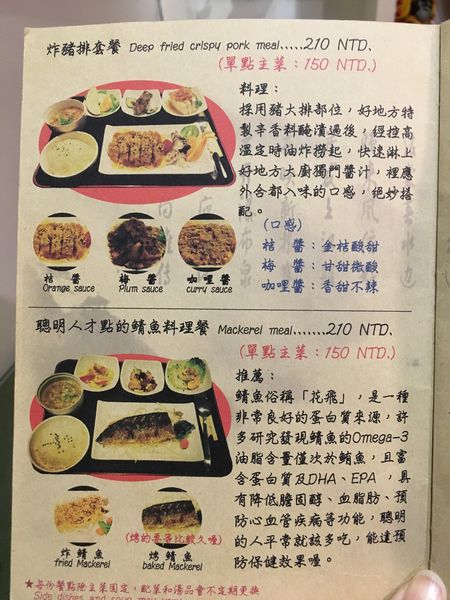 炸豬排套餐 Deep fried crispy pork meal.....210 NTD.
(單點主菜：150 NTD.)
料理：
採用豬大排部位，好地方特
製辛香料醃漬過後，經控高
溫定時油炸撈起，快速淋上
好地方大廚獨門醬汁，裡應
外合都入味的口感，絕妙搭
配。
(口感)
桔 醬：金桔酸甜
梅 醬：甘甜微酸
咖哩醬：香甜不辣
桔 醬
Orange sauce
梅 醬
Plum sauce
咖哩醬
curry sauce
聰明人才點的鯖魚料理餐 Mackerel meal.......210 NTD.
(單點主菜：150 NTD.)
推薦：
鯖魚俗稱「花飛」，是一種
非常良好的蛋白質來源，許
多研究發現鯖魚的Omega-3
油脂含量僅次於鮪魚，且富
含蛋白質及DHA、EPA ，具
有降低膽固醇、血脂肪、預
防心血管疾病等功能，聰明
的人平常就該多吃，能達預
防保健效果喔。
(烤的要等比較久喔)
炸 鯖 魚
fried Mackerel
烤 鯖 魚
baked Mackerel
★每份餐點除主菜固定，配菜和湯品會不定期更換
Side dishes and soup may vary